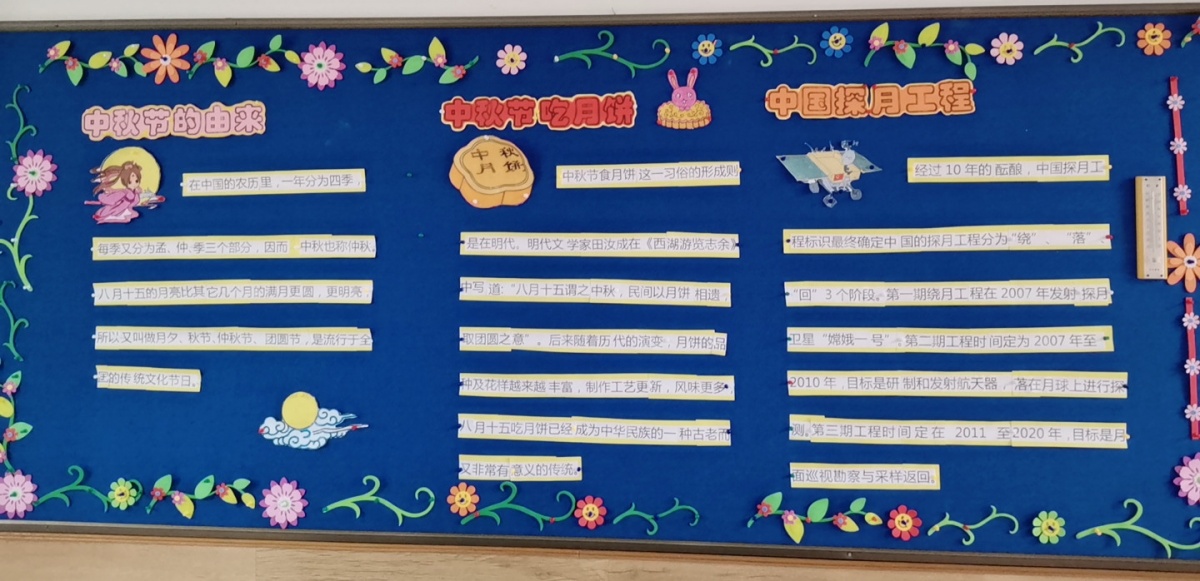 中秋节的由来
在中国的农历里，一年分为四季，
每季又分为孟、仲、季三个部分，因而 中秋也称仲秋。
八月十五的月亮比其它几个月的满月更圆，更明亮，
所以又叫做月夕、秋节、仲秋节、团圆节，是流行于全
的传统文化节日。
中秋节吃月饼
中秋
月饼
中秋节食月饼这一习俗的形成则
是在明代。明代文学家田汝成在《西湖游览志余》
中写道：“八月十五谓之中秋，民间以月饼相遗，
取团圆之意”。后来随着历代的演变，月饼的品
种及花样越来越丰富，制作工艺更新，风味更多，
八月十五吃月饼已经成为中华民族的一种古老而
又非常有意义的传统。
中国探月工程
经过10年的酝酿，中国探月工
程标识最终确定中国的探月工程分为“绕”、“落”、
“回”3个阶段。第一期绕月工程在2007年发射探月
卫星“嫦娥一号”。第二期工程时间定为2007年至
2010年，目标是研制和发射航天器，落在月球上进行探
测。第三期工程时间定在 2011 至2020年，目标是月
面巡视勘察与采样返回。